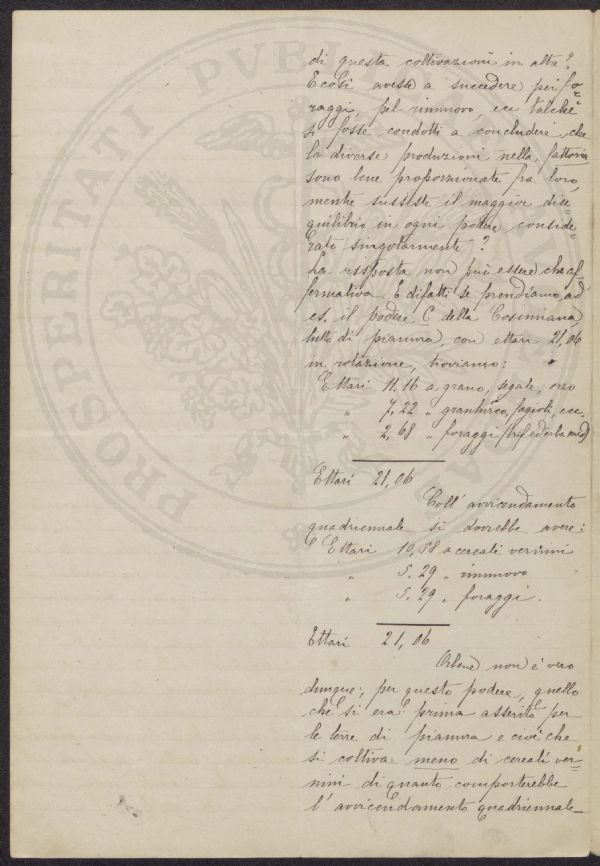 di questa coltivazioni in altre?
E così avesse a succedere pei fo=
raggi, pel rinnovo, ecc. talchè
si fosse condotti a concludere che
le diverse produzioni nella fattoria
sono bene proporzionate fra loro,
mentre sussiste il maggior dise=
quilibrio in ogni podere conside=
rato singolarmente?
La risposta non può essere che af=
fermativa. E difatti se prendiamo, ad
es. il podere C della Cosimiana,
tutto di pianura, con ettari 21,06
in rotazione, troviamo:
Ettari 11,16 a grano, segale, orzo
" 7,22 " granturco, fagioli, ecc.
" 2,68 " foraggi (trif. ed erba med)
Ettari 21,06
Coll' avvicendamento
quadriennale si dovrebbe avere:
Ettari 10,58 a cereali vernini
" 5,29 " rinnovo
" 5,29 " foraggi.
Ettari 21,06
Orbene non è vero
dunque, per questo podere, quello
che si era prima asserito per
le terre di pianura e cioè che
si coltiva meno di cereali ver=
nini di quanto comporterebbe
l' avvicendamento quadriennale_
PROSPERITATI PVBLICAE